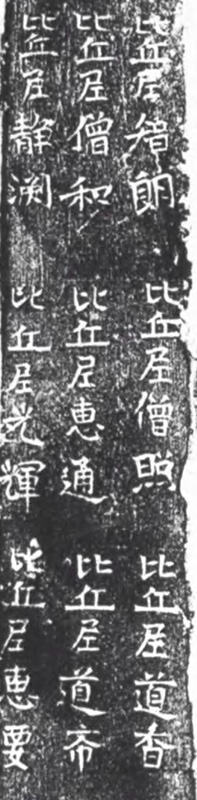 比丘尼智朗
比丘尼僧照
比丘尼道香
比丘尼僧和
比丘尼惠通
比丘尼道斎
比丘尼靜渕
比丘尼光輝
比丘尼惠要